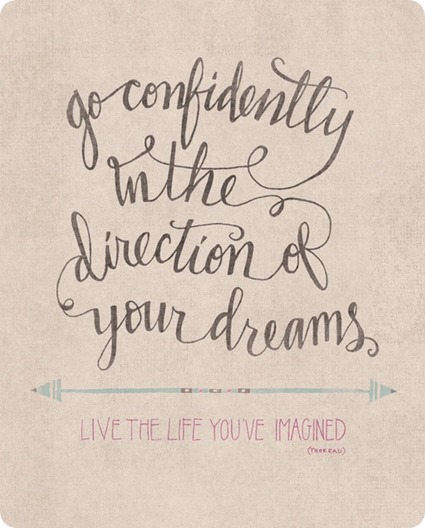 go confidently
in the
direction of
your dreams
LIVE THE LIFE YOU'VE IMAGINED
(THOREAU)